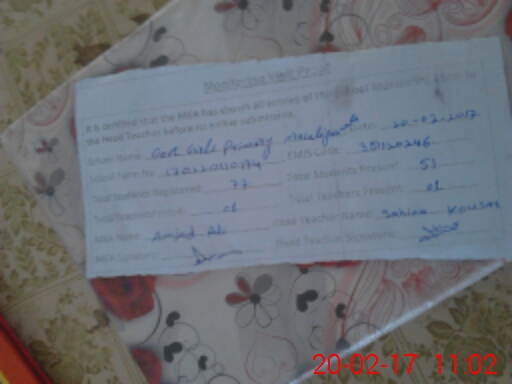 Monitoring Visit Proof
It is certified that the MEA has shown all entries of the School Monitoring Form to
the Head Teacher before its online submission.
School Name: Govt Girls Primary Date: 20-02-2017
School Form No
EMIS Code:
Total Students Registered: 77 Total Students Present: 51
Total Teachers Posted: 01 Total Teachers Present: 01
MEA Name: Amjad Ali Head Teacher Name: Sahina Kousar
MEA Signature: Head Teacher Signature:
20-02-17 11:02